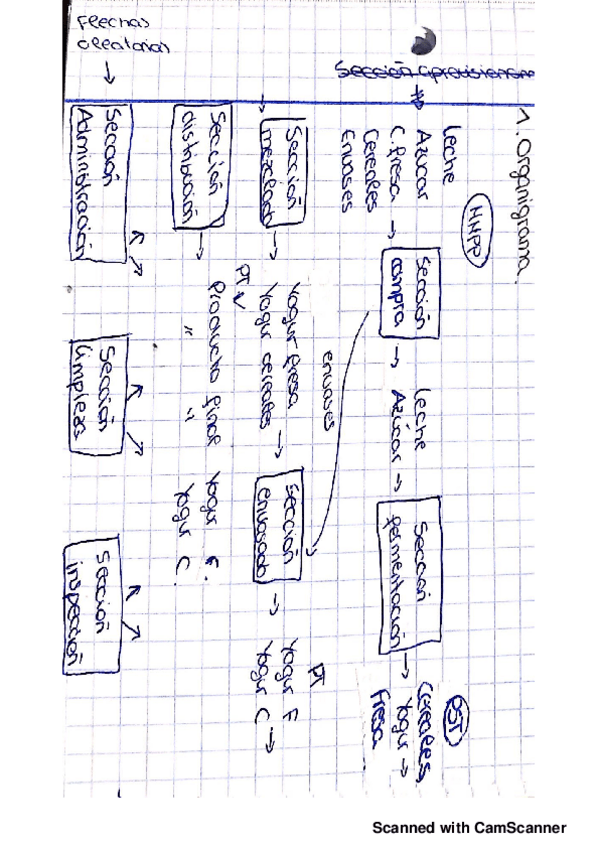 1. Organigrama.
Sección aprovisionam
MMPP
Leche
Azucar
C. fresa
Cereales
Envases
Sección
compra
Leche
Azúcar
Sección
fermentación
PST
Cereales
Yogur
Fresa
envases
Sección
mezclado
Yogur fresa
Yogur cereales
Sección
envasado
PT
Yogur F
Yogur C
Sección
distribución
PT
Producto final Yogur F.
" " Yogur C.
Sección
Administración
Sección
limpieza
Sección
inspección
Flechas
aleatorias
Scanned with CamScanner